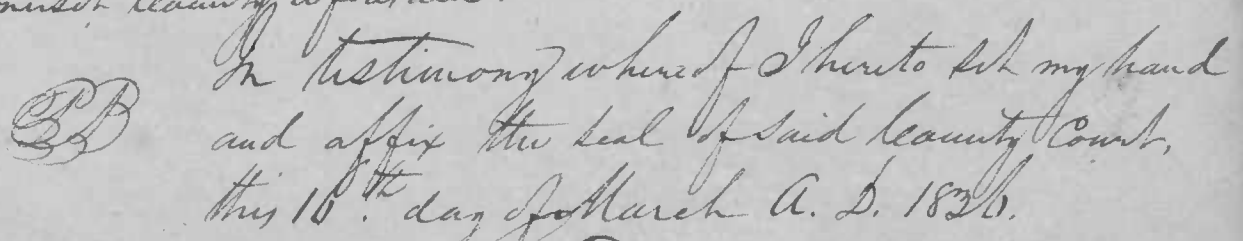 County aforesaid.
In testimony whereof I hereto set my hand
and affix the seal of said County Court,
this 10.th day of March A. D. 1836.